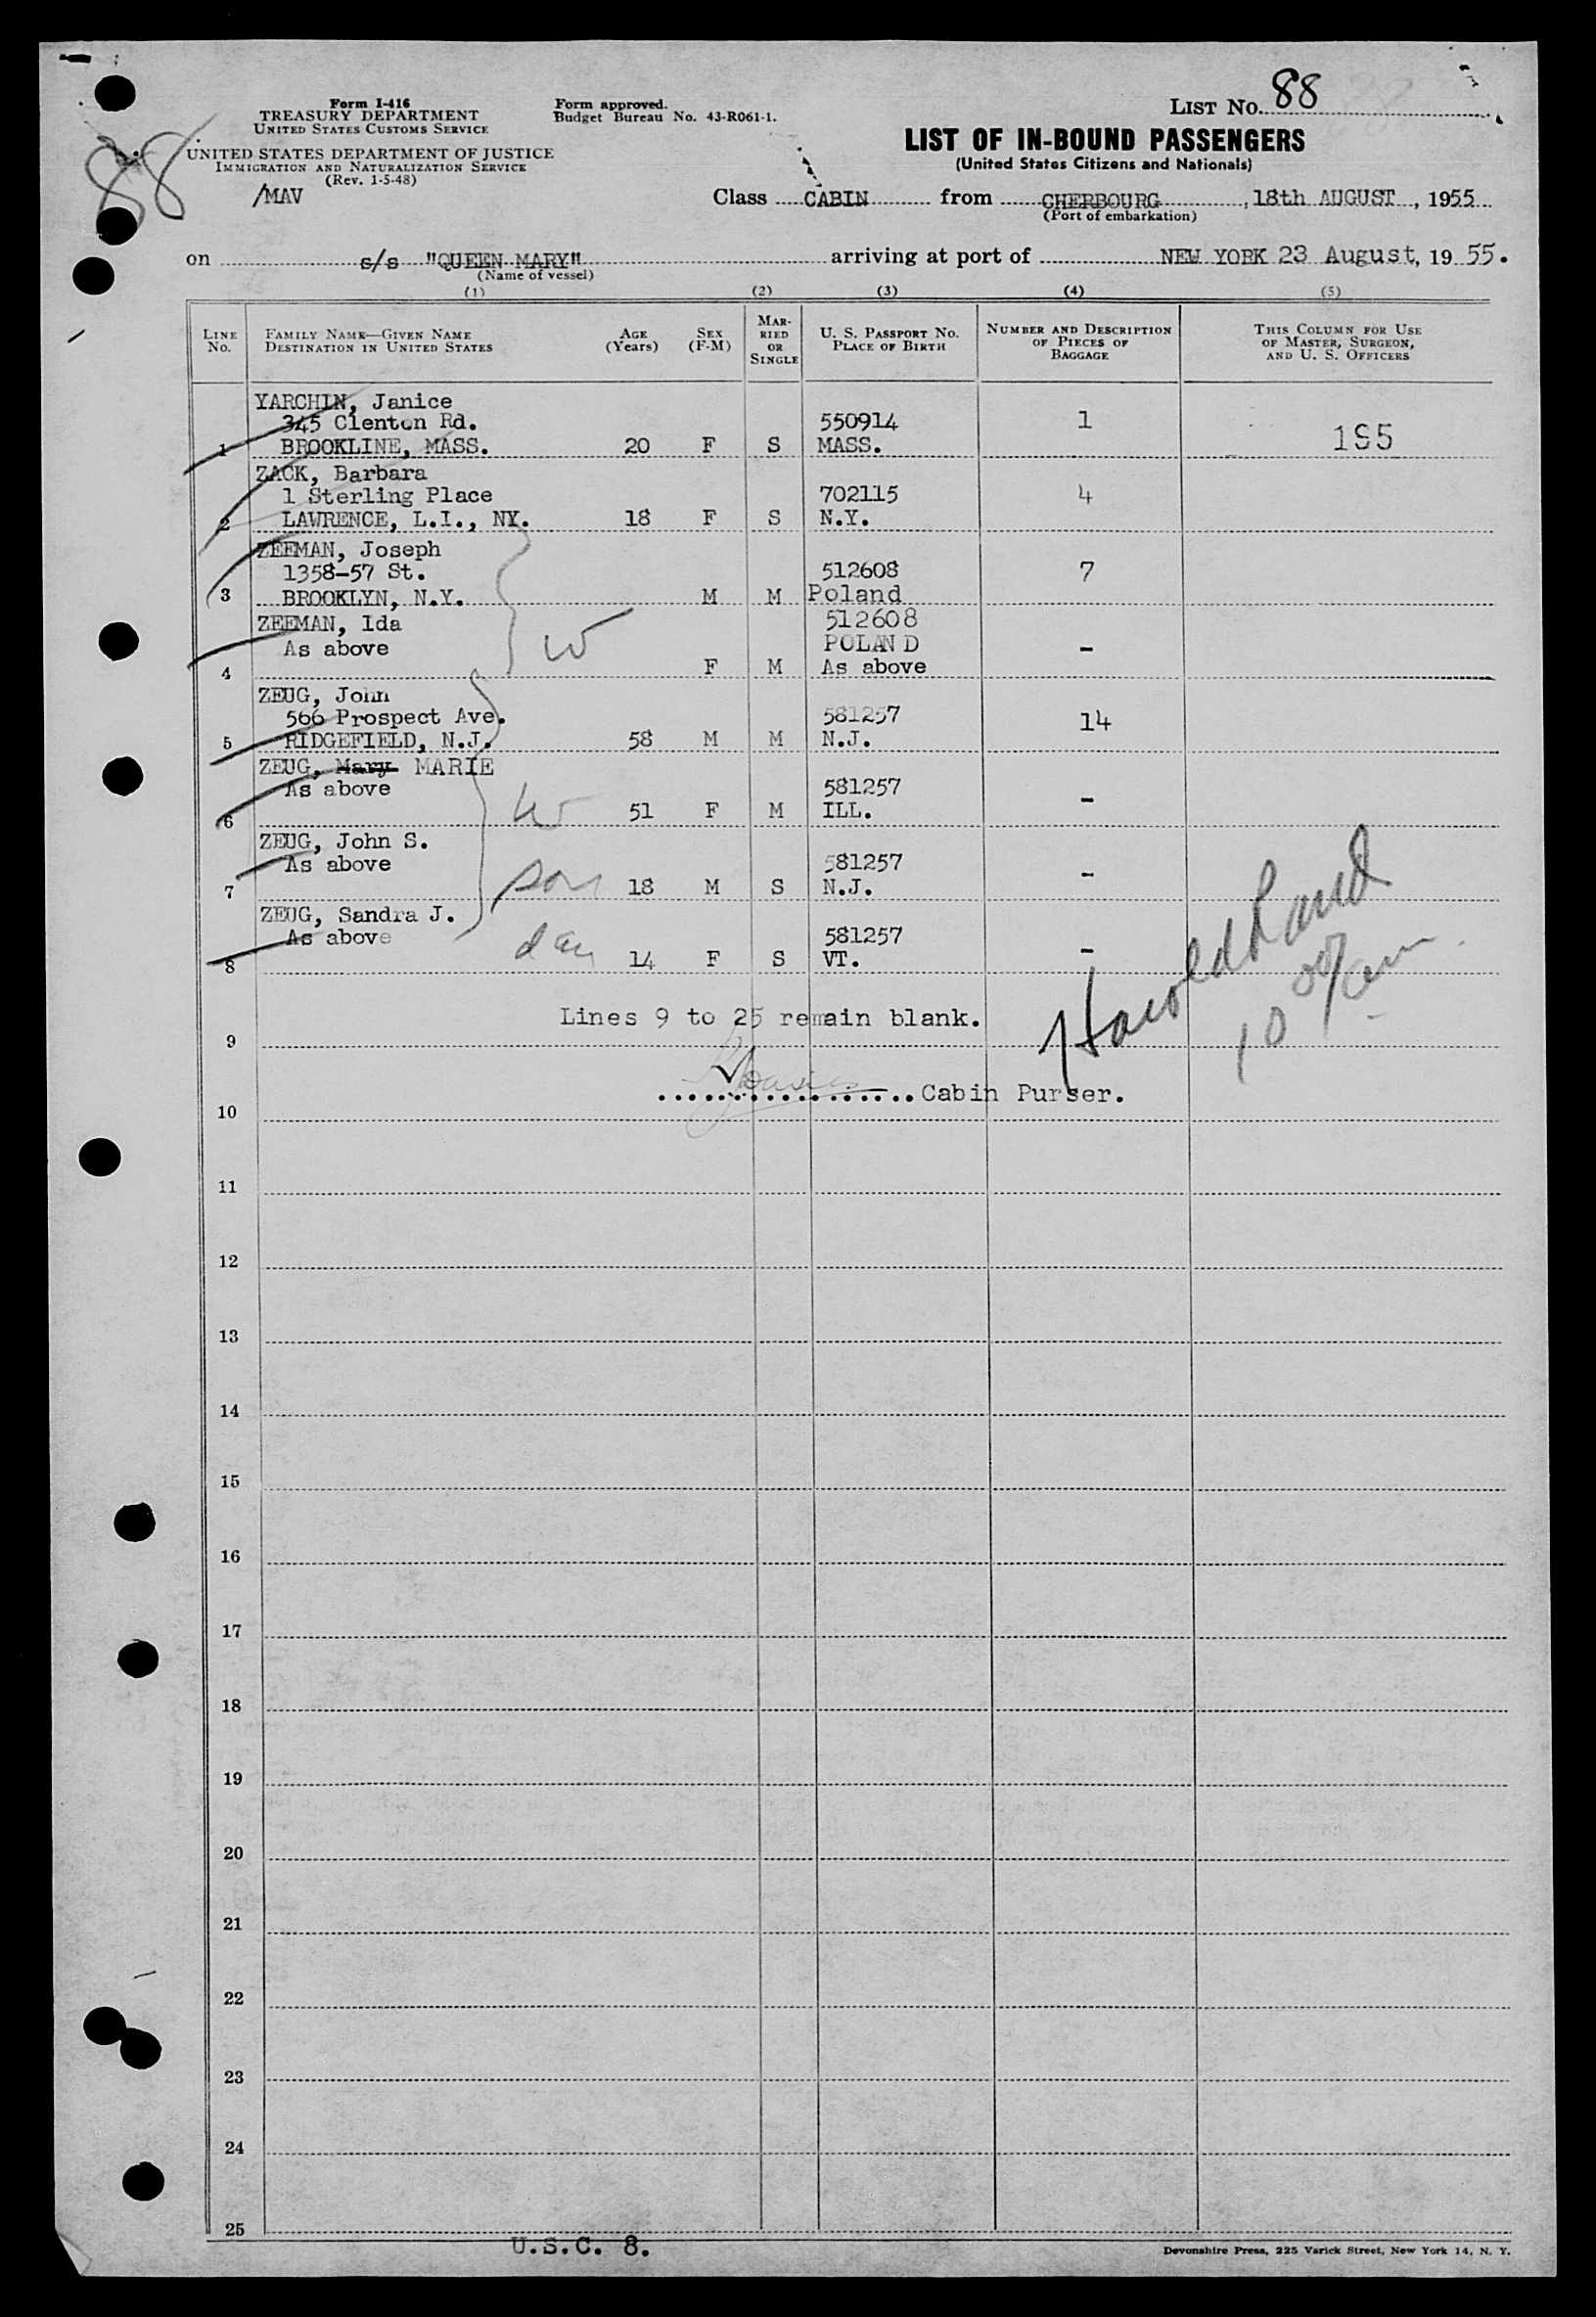 88
Form I-416
TREASURY DEPARTMENT
UNITED STATES CUSTOMS SERVICE
UNITED STATES DEPARTMENT OF JUSTICE
IMMIGRATION AND NATURALIZATION SERVICE
(Rev. 1-5-48)
/MAV
Form approved.
Budget Bureau No. 43-R061-1.
LIST No. 88
LIST OF IN-BOUND PASSENGERS
(United States Citizens and Nationals)
Class CABIN from CHERBOURG, 18th AUGUST, 1955
(Port of embarkation)
on s/s "QUEEN MARY" arriving at port of NEW YORK 23 August, 1955.
(Name of vessel)
(1) (2) (3) (4) (5)
LINE No. FAMILY NAME—GIVEN NAME DESTINATION IN UNITED STATES AGE (Years) SEX (F-M) MARRIED OR SINGLE U. S. PASSPORT NO. PLACE OF BIRTH NUMBER AND DESCRIPTION OF PIECES OF BAGGAGE THIS COLUMN FOR USE OF MASTER, SURGEON, AND U. S. OFFICERS
YARCHIN, Janice
345 Clenton Rd. 550914 1
1 BROOKLINE, MASS. 20 F S MASS. 195
ZACK, Barbara
1 Sterling Place 702115 4
2 LAWRENCE, L.I., NY. 18 F S N.Y.
ZEEMAN, Joseph
1358-57 St. 512608 7
3 BROOKLYN, N.Y. M M Poland
ZEEMAN, Ida 512608
As above W POLAND -
4 F M As above
ZEUG, John
566 Prospect Ave. 581257 14
5 RIDGEFIELD, N.J. 58 M M N.J.
ZEUG, Mary MARIE
As above 581257 -
6 W 51 F M ILL.
ZEUG, John S.
As above 581257 -
7 son 18 M S N.J.
ZEUG, Sandra J.
As above 581257 -
8 dau 14 F S VT.
Harold Land
10 00/am
Lines 9 to 25 remain blank.
9
Cabin Purser.
10
11
12
13
14
15
16
17
18
19
20
21
22
23
24
25
U.S.C. 8.
Devonshire Press, 225 Varick Street, New York 14, N. Y.